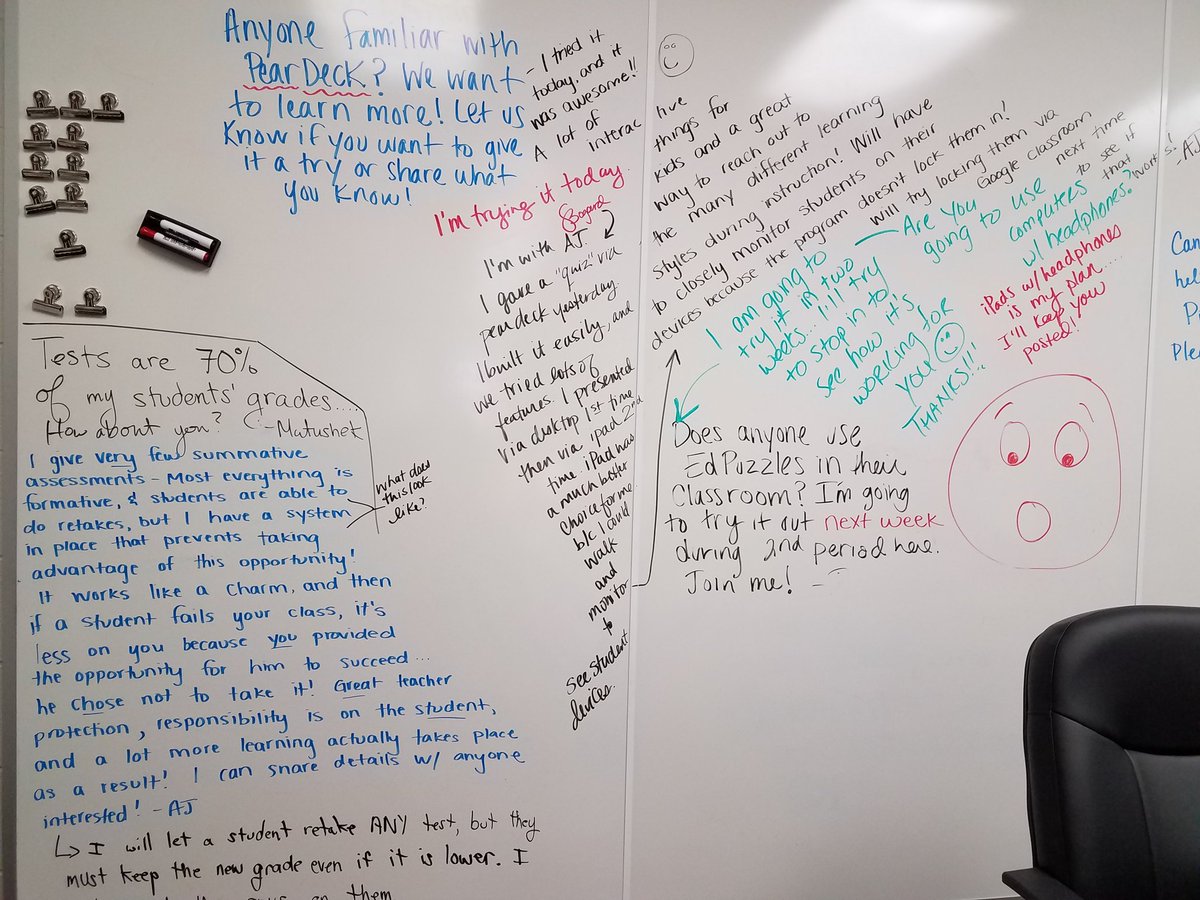 Anyone familiar with
Pear Deck? We want
to learn more! Let us
Know if you want to give
it a try or share what
you know!
- I tried it
today, and it
was awesome!!
A lot of
interac
tive
things for
kids and a great
way to reach out to
the many different learning
styles during instruction! Will have
to closely monitor students on their
devices because the program doesn't lock them in!
will try locking them via
Google Classroom
next time
to see if
that
works!
-AJ
I'm trying it today.
I'm with AJ.
I gave a "quiz" via
pear deck yesterday.
I built it easily, and
we tried lots of
features. I presented
via desktop 1st time
then via ipad 2nd
time. iPad was
a much better
choice for me
b/c I could
walk
and
monitor
to
see student
devices.
I am going to
try it in two
weeks... I'll try
to stop in to
see how it's
working for
you
THANKS!!
— Are you
going to use
computers
w/ headphones?
iPads w/headphones
is my plan.....
I'll keep you
posted!!
Does anyone use
EdPuzzles in their
Classroom? I'm going
to try it out next week
during 2nd period here.
Join me!
Tests are 70%
of my students' grades....
How about you? -Matushek
I give very few summative
assessments - Most everything is
formative, & students are able to
do retakes, but I have a system
in place that prevents taking
advantage of this opportunity!
It works like a charm, and then
if a student fails your class, it's
less on you because you provided
the opportunity for him to succeed...
he chose not to take it! Great teacher
protection, responsibility is on the student,
and a lot more learning actually takes place
as a result! I can share details w/ anyone
interested! - AJ
what does
this look
like?
I will let a student retake ANY test, but they
must keep the new grade even if it is lower. I
on them
Can
hel
P
Ple